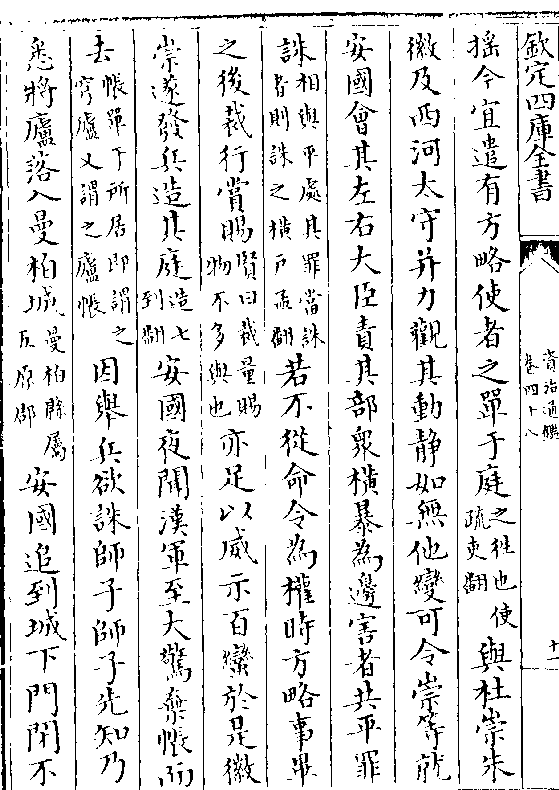 欽定四庫全書
資治通鑑
卷四十八
十一
搖今宜遣有方略使者之單于庭之往也使疏吏翻與杜崇朱
徽及西河太守并力觀其動静如無他變可令崇等就
安國會其左右大臣責其部衆横暴為邊害者共平罪
誅相與平處其罪當誅者則誅之横戸孟翻若不從命令為權時方略事畢
之後裁行賞賜賢曰裁量賜物不多與也亦足以威示百蠻於是徽
崇遂發兵造其庭造七到翻安國夜聞漢軍至大驚棄帳而
去帳單于所居即謂之穹廬又謂之廬帳因舉兵欲誅師子師子先知乃
悉將廬落入曼柏城曼柏縣屬五原郡安國追到城下門閉不